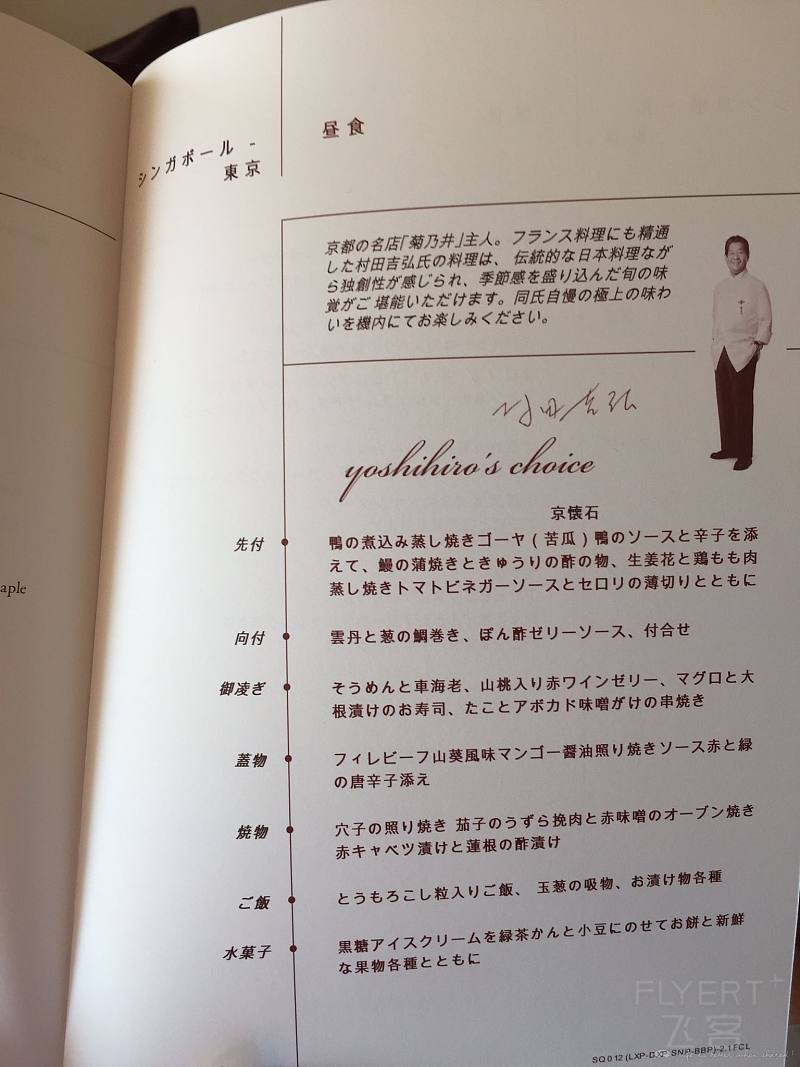 シンガポール -
東京
昼食
京都の名店「菊乃井」主人。フランス料理にも精通
した村田吉弘氏の料理は、伝統的な日本料理なが
ら独創性が感じられ、季節感を盛り込んだ旬の味
覚がご 堪能いただけます。同氏自慢の極上の味わ
いを機内にてお楽しみください。
村田吉弘
yoshihiro's choice
京懐石
先付
鴨の煮込み蒸し焼きゴーヤ(苦瓜)鴨のソースと辛子を添
えて、鰻の蒲焼きときゅうりの酢の物、生姜花と鶏もも肉
蒸し焼きトマトビネガーソースとセロリの薄切りとともに
aple
向付
雲丹と葱の鯛巻き、ぽん酢ゼリーソース、付合せ
御凌ぎ
そうめんと車海老、山桃入り赤ワインゼリー、マグロと大
根漬けのお寿司、たことアボカド味噌がけの串焼き
蓋物
フィレビーフ山葵風味マンゴー醤油照り焼きソース赤と緑
の唐辛子添え
焼物
穴子の照り焼き 茄子のうずら挽肉と赤味噌のオーブン焼き
赤キャベツ漬けと蓮根の酢漬け
ご飯
とうもろこし粒入りご飯、 玉葱の吸物、お漬け物各種
水菓子
黒糖アイスクリームを緑茶かんと小豆にのせてお餅と新鮮
な果物各種とともに
FLYERT+
飞客
SQ012 (LXP-DXP SNP-BBP)-2.1FCL